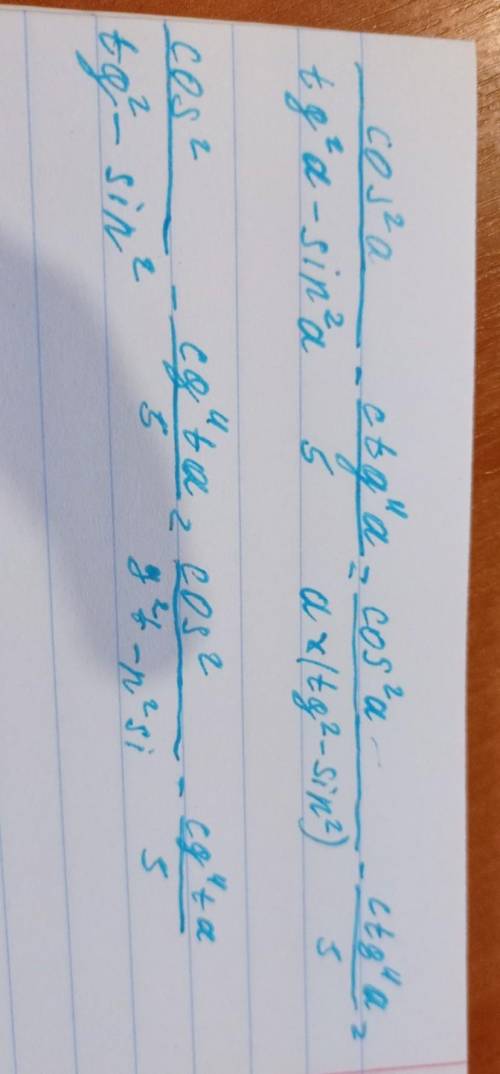 cos²a / tg²a - sin²a - ctg⁴a / 5 = cos²a / a×(tg² - sin²) - ctg⁴a / 5 =
cos² / tg² - sin² - cg⁴ta / 5 = cos² / g²t - n²si - cg⁴ta / 5